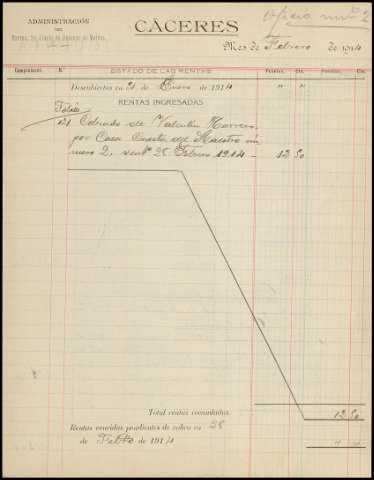 ADMINISTRACIÓN
DEL
CÁCERES
Mes de Febrero de 1914
Comprobante. N.º ESTADO DE LAS RENTAS Pesetas. Cts. Pesetas. Cts.
Descubiertos en 31 de Enero de 1914 " "
RENTAS INGRESADAS
Febro
121 Cobrado de Valentin Herrero
por Casa Cuesta del Maestro nú
mero 2, vento 28 Febrero 1914 - 12 50
Total rentas consumadas. 12 50
Rentas vencidas pendientes de cobro en 28
de Febro de 1914 " "